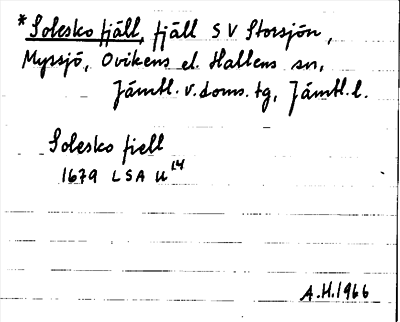 * Solesko fjäll, fjäll SV Storsjön,
Myssjö, Ovikens el. Hallens sn,
Jämtl. v. doms. tg, Jämtl. l.
Solesko fiell
1679 LSA U14
A.H. 1966